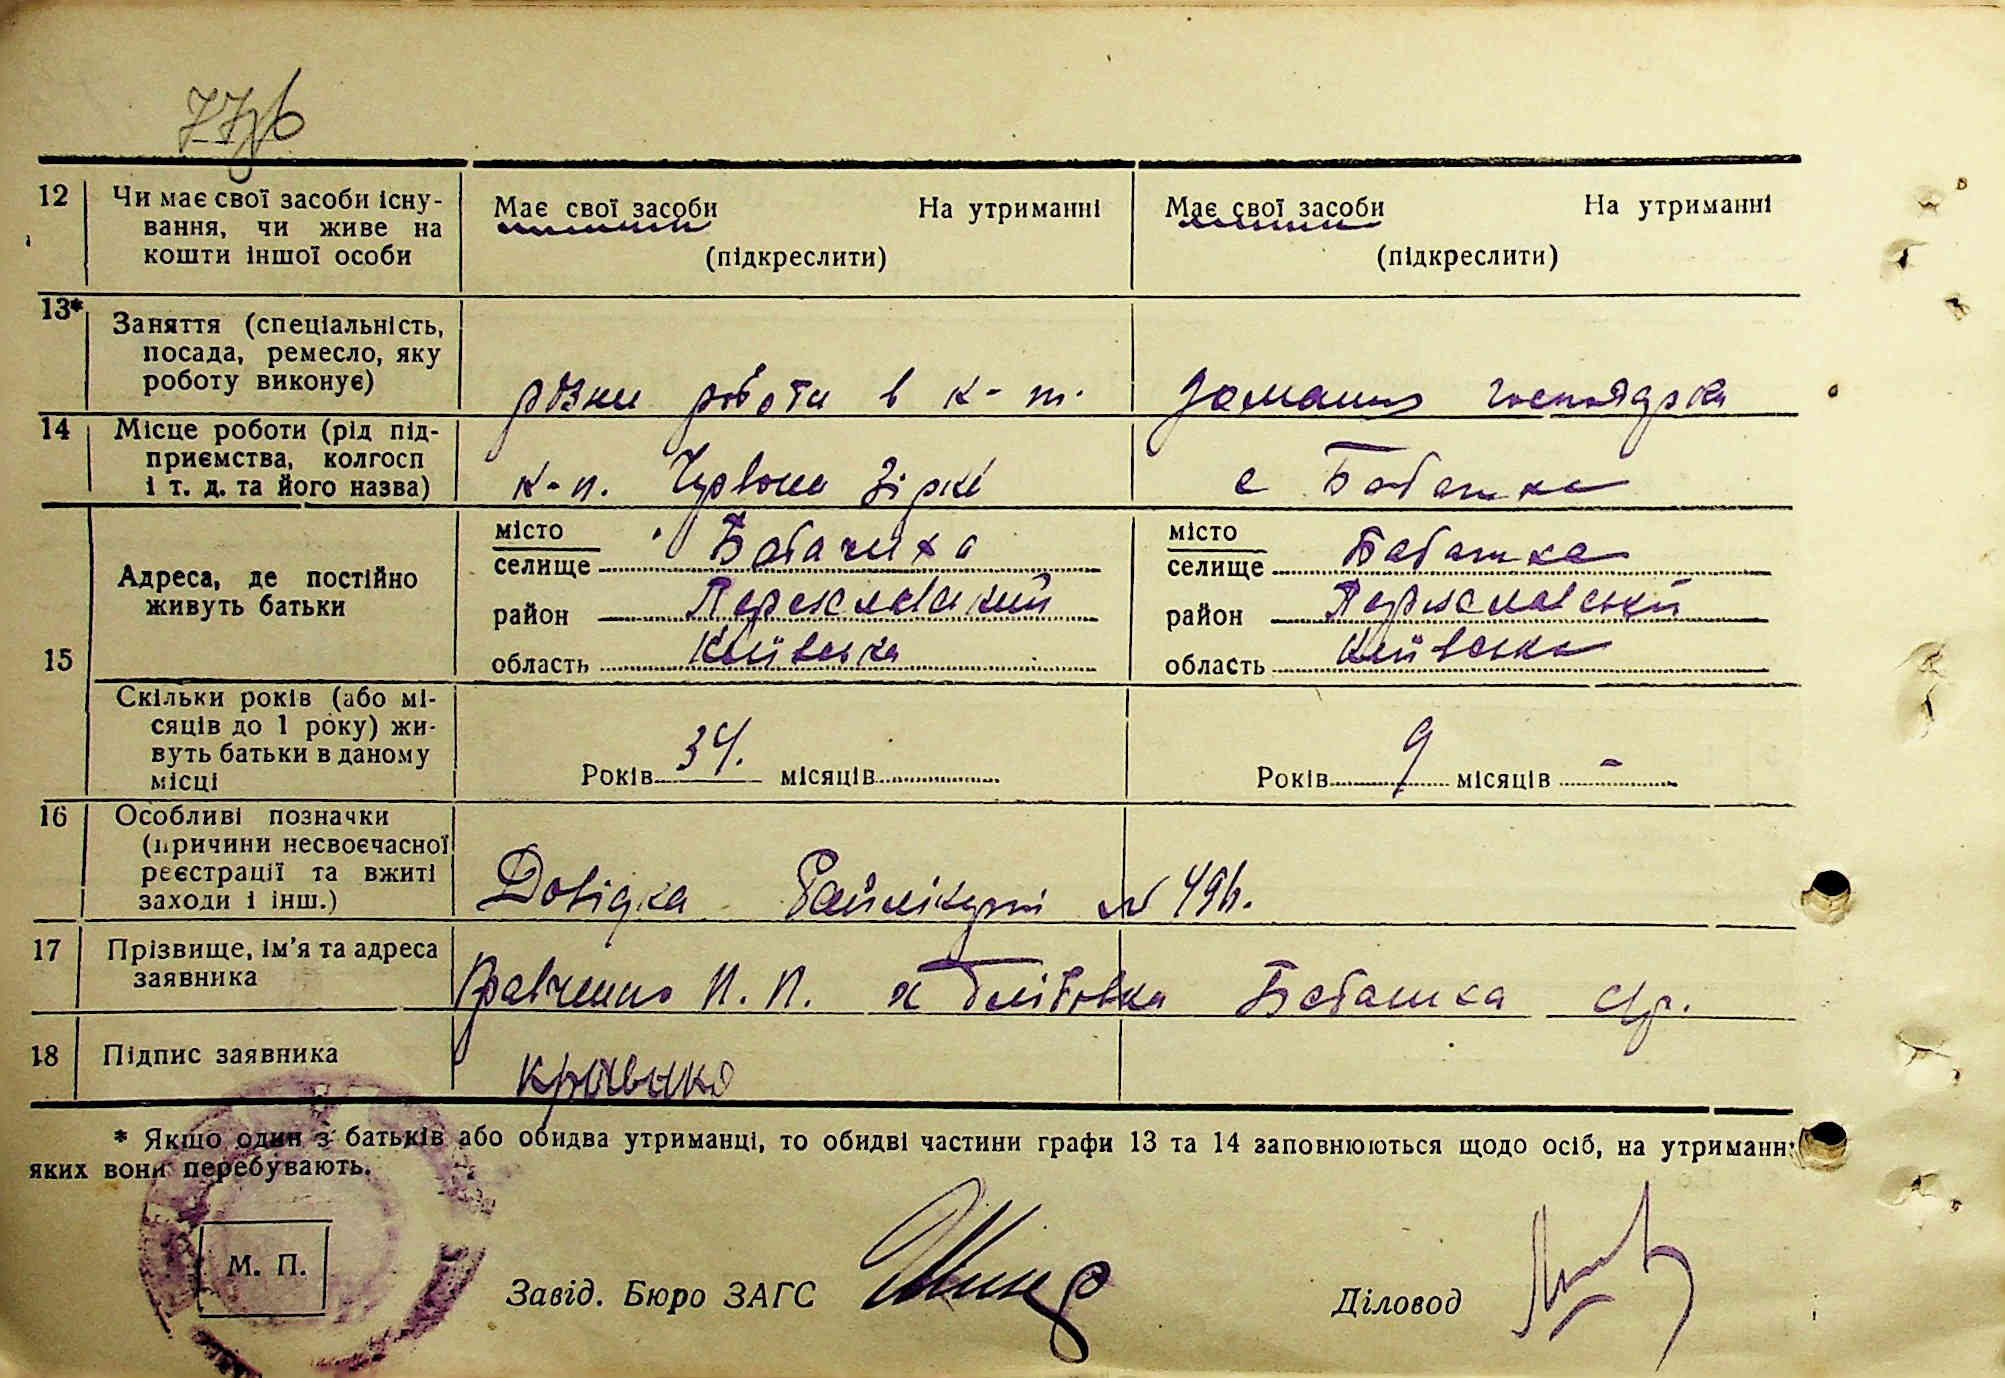 12 Чи має свої засоби існу-
вання, чи живе на
кошти іншої особи
Має свої засоби На утриманні
(підкреслити)
Має свої засоби На утриманні
(підкреслити)
13* Заняття (спеціальність,
посада, ремесло, яку
роботу виконує)
різни роботи в к-т.
домашня господарка
14 Місце роботи (рід під-
приємства, колгосп
і т. д. та його назва)
к-п. Червона Зірка
с Бабашка
15 Адреса, де постійно
живуть батьки
місто
селище Бабачиха
район Переяславський
область Київська
місто
селище Бабашка
район Переяславський
область Київська
Скільки років (або мі-
сяців до 1 року) жи-
вуть батьки в даному
місці
Років 34. місяців
Років 9 місяців -
16 Особливі позначки
(причини несвоєчасної
реєстрації та вжиті
заходи і інш.)
Довідка Райлікарні №
17 Прізвище, ім'я та адреса
заявника
Кравченко П. П. х Бабашка
18 Підпис заявника
* Якщо один з батьків або обидва утриманці, то обидві частини графи 13 та 14 заповнюються щодо осіб, на утриманні
яких вони перебувають.
М. П.
Завід. Бюро ЗАГС
Діловод